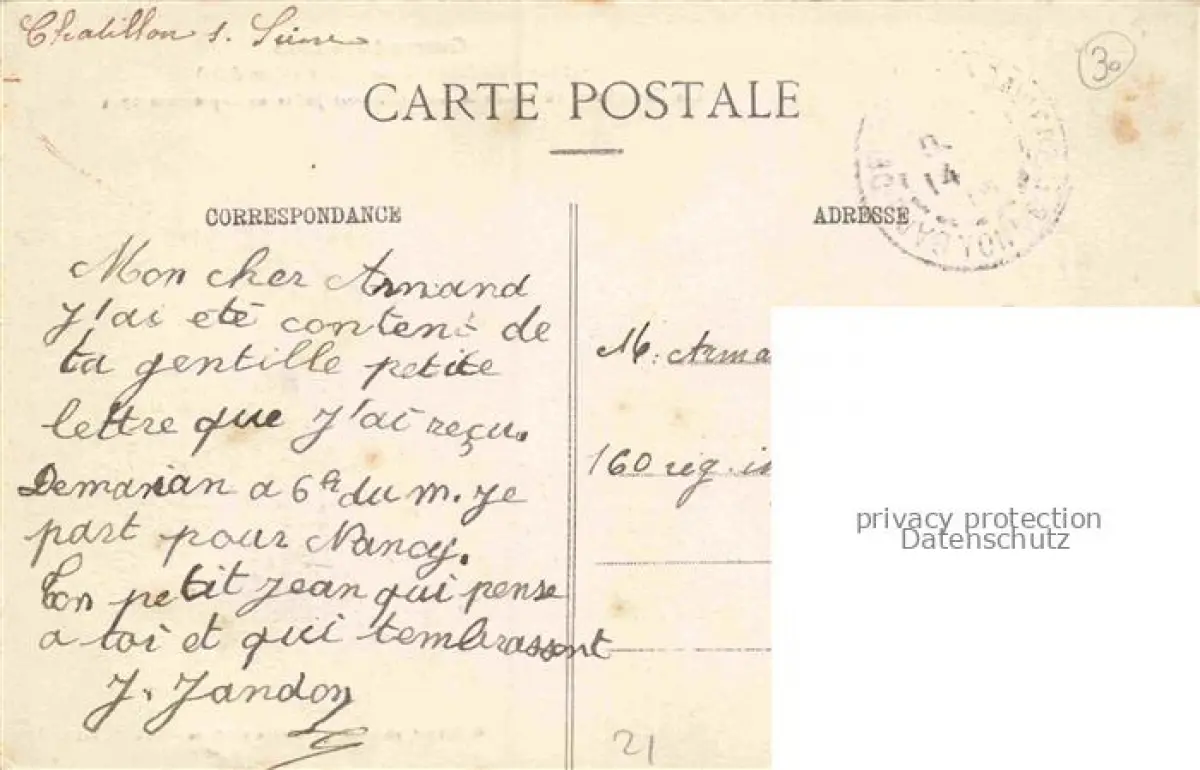 Chatillon s. Seine
30
CARTE POSTALE
CORRESPONDANCE
ADRESSE
Mon cher Armand
J'ai eté content de
ta gentille petite
lettre que J'ai reçu.
Demanian a 6h du m. Je
part pour Nancy.
Ton petit Jean qui pense
a toi et qui tembrassent
J. Jandon
M. Arma
160 reg. in
21
privacy protection
Datenschutz